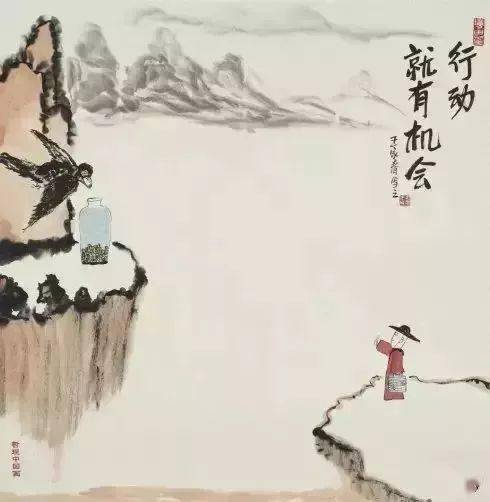 行动
就有机会
哲理中国画